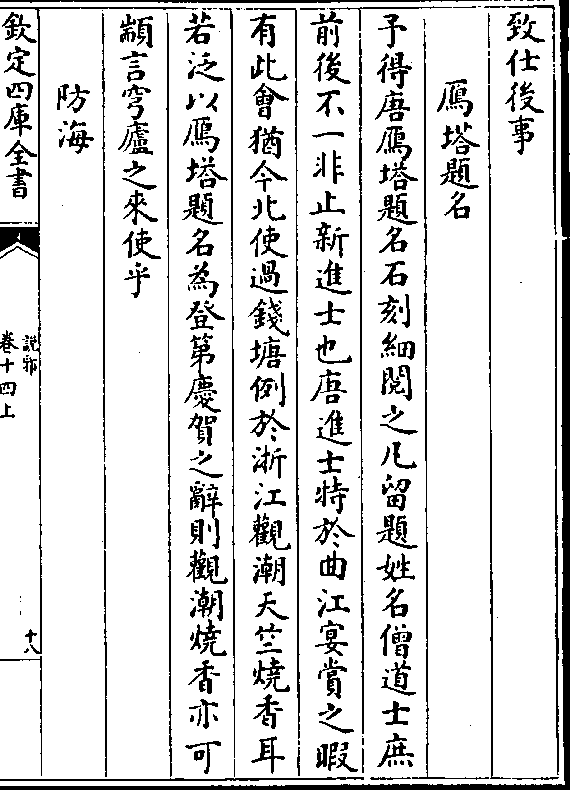 致仕後事
鴈塔題名
予得唐鴈塔題名石刻細閱之凡留題姓名僧道士庶
前後不一非止新進士也唐進士特於曲江宴賞之暇
有此會猶今北使過錢塘例於浙江觀潮天竺燒香耳
若泛以鴈塔題名為登第慶賀之辭則觀潮燒香亦可
顓言穹廬之來使乎
防海
欽定四庫全書
說郛
卷十四上
十八